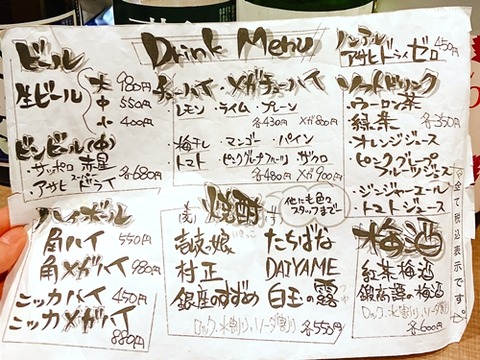 Drink Menu
ビール
生ビール
大 980円
中 550円
小 400円
ビンビール(中)
・サッポロ赤星
・アサヒスーパードライ
各680円
チューハイ・メガチューハイ
・レモン ・ライム・プレーン
各430円 メガ800円
・梅干し ・マンゴー ・パイン
・トマト ・ピングレフルーツ ・ザクロ
各480円 メガ900円
ノンアル
アサヒドライゼロ 450円
ソフトドリンク
・ウーロン茶
・緑茶
各350円
・オレンジジュース
・ピンクグレープフルーツジュース
・ジンジャーエール
・トマトジュース
※全て税込表示です。
ハイボール
角ハイ 550円
角メガハイ 980円
ニッカハイ 450円
ニッカメガハイ 880円
焼酎
他にも色々
スタッフまで
壱岐娘
たちばな
村正
DAIYAME
銀座のすずめ
白玉の露
ロック、水割り、ソーダ割り
各550円
梅酒
紅茶梅酒
鍛高譚の梅酒
ロック、水割り、ソーダ割り
各600円